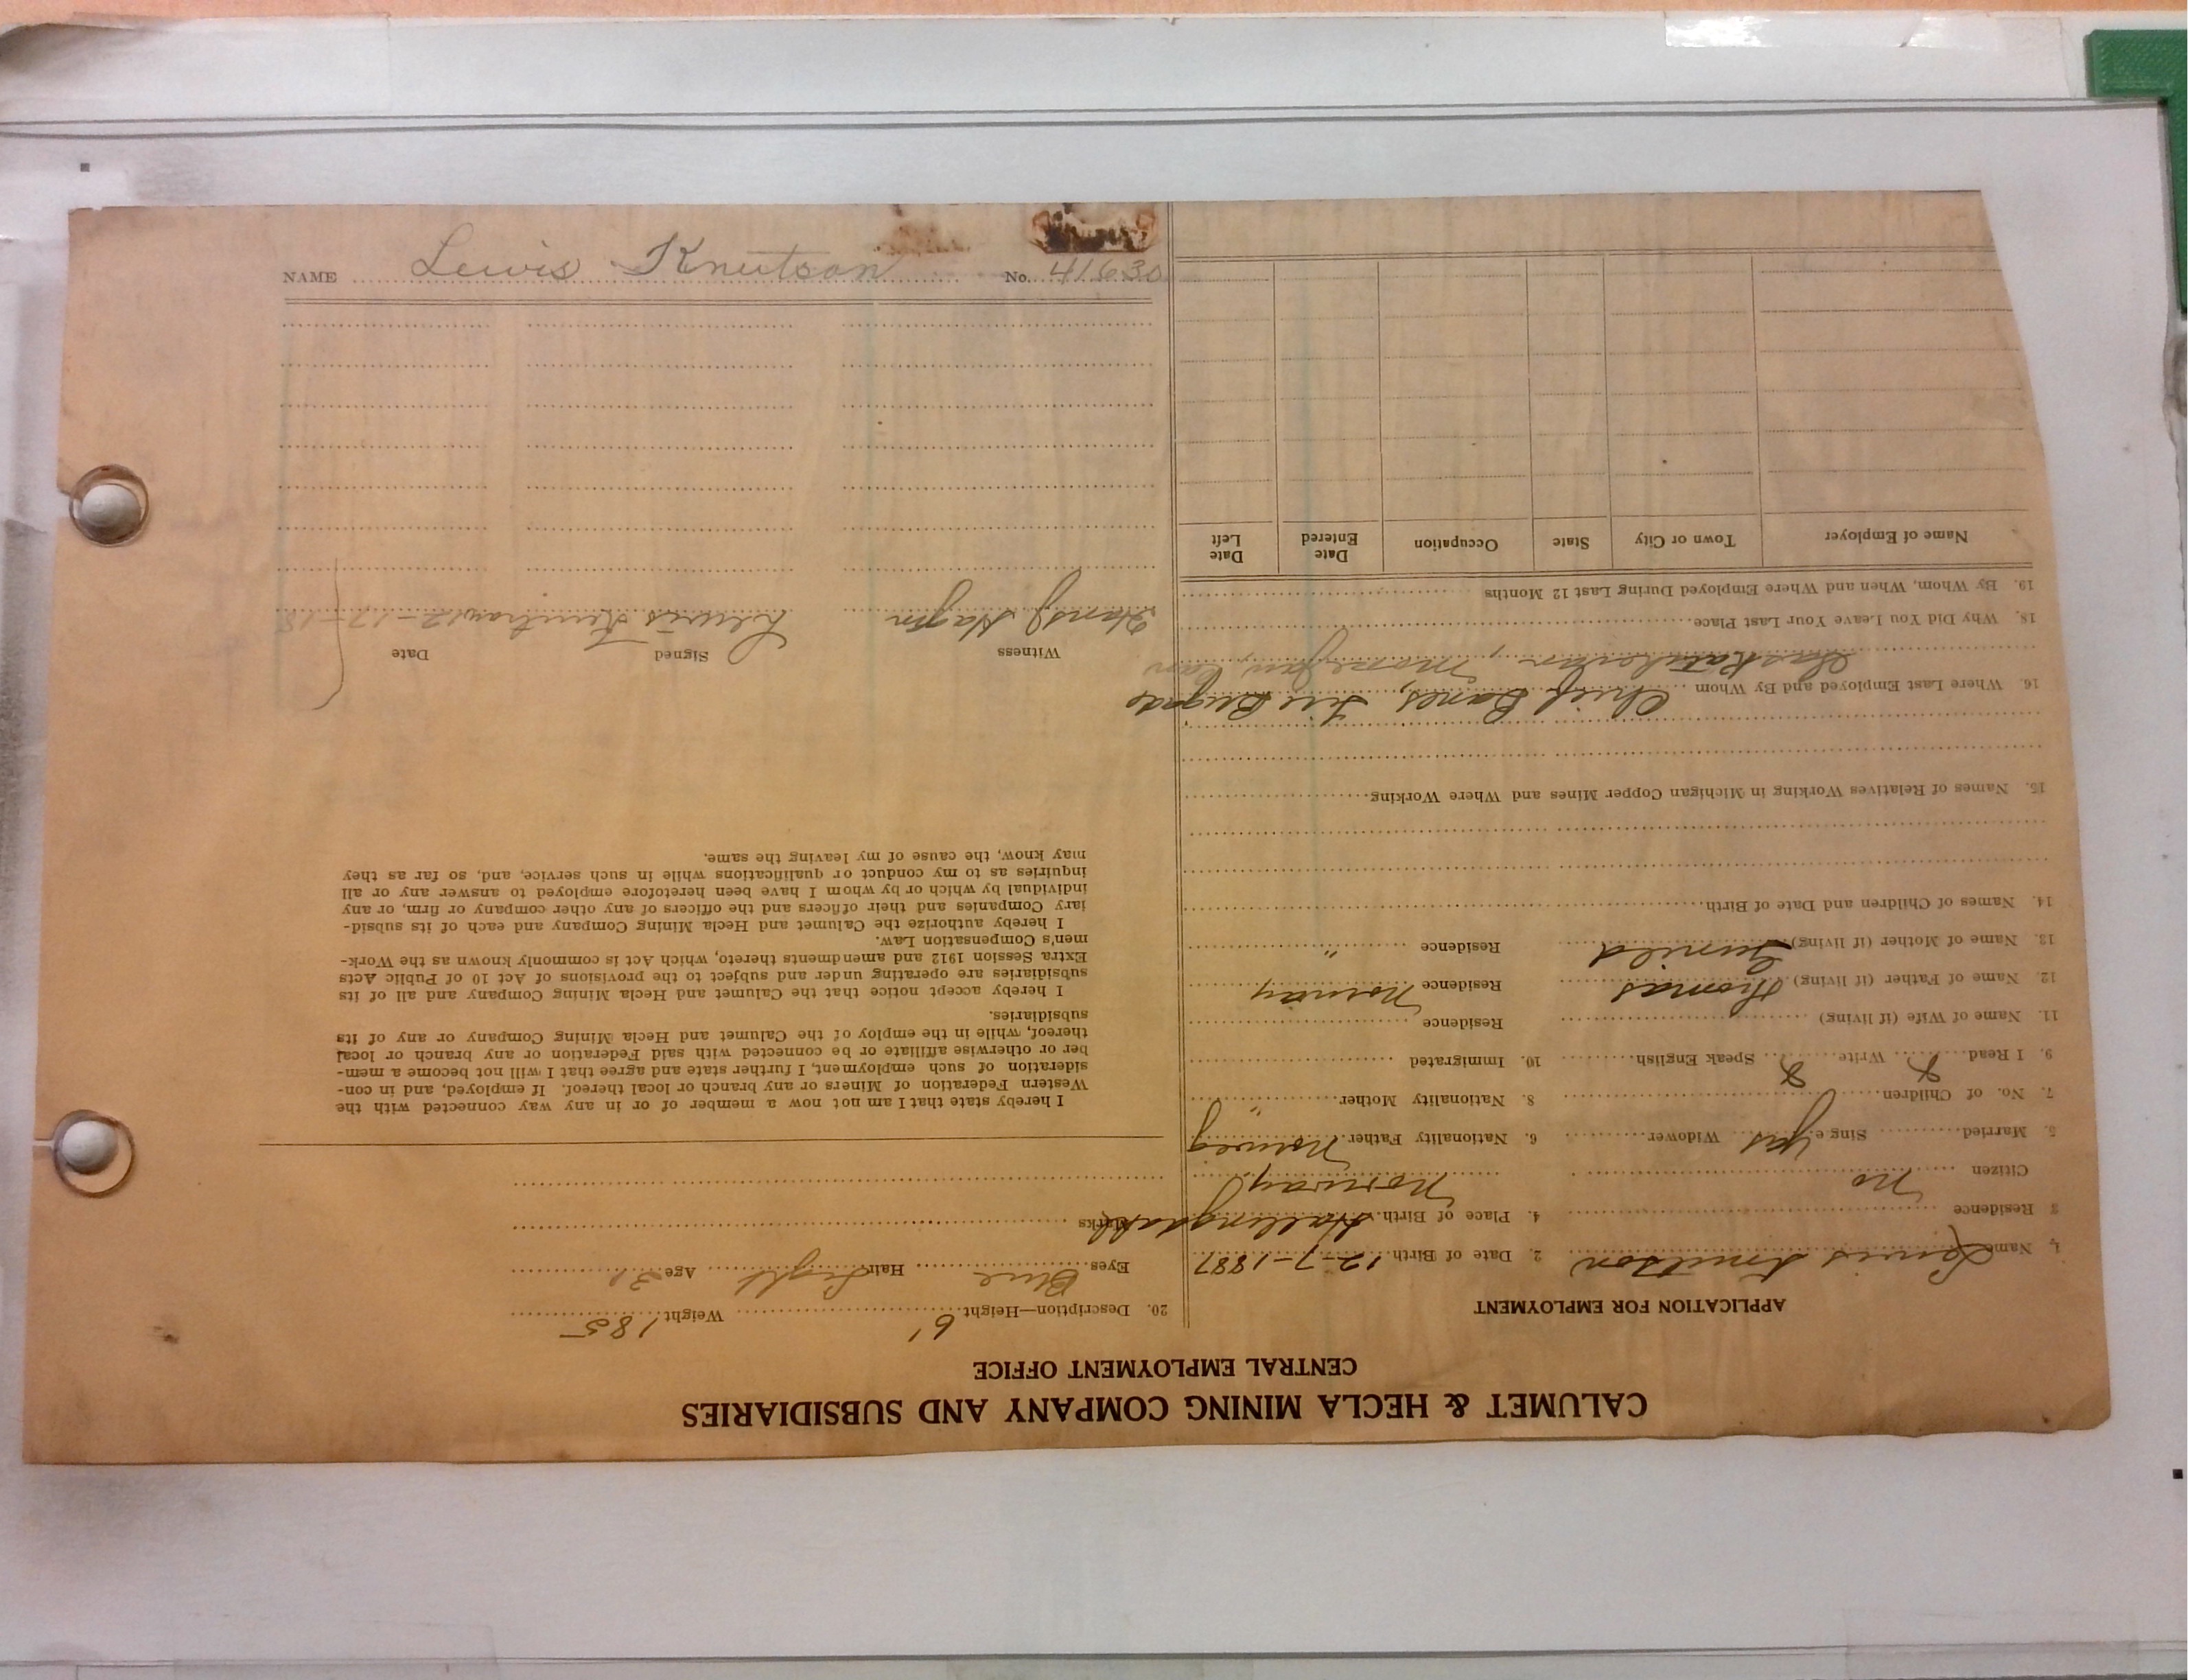 CALUMET & HECLA MINING COMPANY AND SUBSIDIARIES
CENTRAL EMPLOYMENT OFFICE
APPLICATION FOR EMPLOYMENT
1. Name Lewis Knutson 2. Date of Birth 12-7-1887
3 Residence 4. Place of Birth
Citizen no Norway
5. Married Single yes Widower 6. Nationality Father Norweg
7. No. of Children 8. Nationality Mother "
9. I Read Write Speak English 10. Immigrated
11. Name of Wife (if living) Residence
12. Name of Father (if living) Thomas Residence Norway
13. Name of Mother (if living) Gunild Residence "
14. Names of Children and Date of Birth
15. Names of Relatives Working in Michigan Copper Mines and Where Working
16. Where Last Employed and By Whom Chief Fire
Moose Jaw, Can
18. Why Did You Leave Your Last Place
19. By Whom, When and Where Employed During Last 12 Months
Name of Employer Town or City State Occupation Date Entered Date Left
20. Description—Height 6' Weight 185
Eyes Blue Hair Light Age 31
Marks
I hereby state that I am not now a member of or in any way connected with the
Western Federation of Miners or any branch or local thereof. If employed, and in con-
sideration of such employment, I further state and agree that I will not become a mem-
ber or otherwise affiliate or be connected with said Federation or any branch or local
thereof, while in the employ of the Calumet and Hecla Mining Company or any of its
subsidiaries.
I hereby accept notice that the Calumet and Hecla Mining Company and all of its
subsidiaries are operating under and subject to the provisions of Act 10 of Public Acts
Extra Session 1912 and amendments thereto, which Act is commonly known as the Work-
men's Compensation Law.
I hereby authorize the Calumet and Hecla Mining Company and each of its subsid-
iary Companies and their officers and the officers of any other company or firm, or any
individual by which or by whom I have been heretofore employed to answer any or all
inquiries as to my conduct or qualifications while in such service, and, so far as they
may know, the cause of my leaving the same.
Witness Signed Date
Lewis Knutson 12-17-18
NAME Lewis Knutson No. 41630